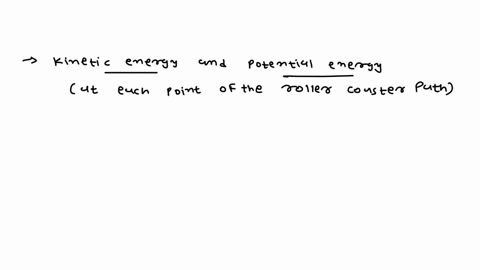 → Kinetic energy and potential energy
(at each point of the roller couster Path)